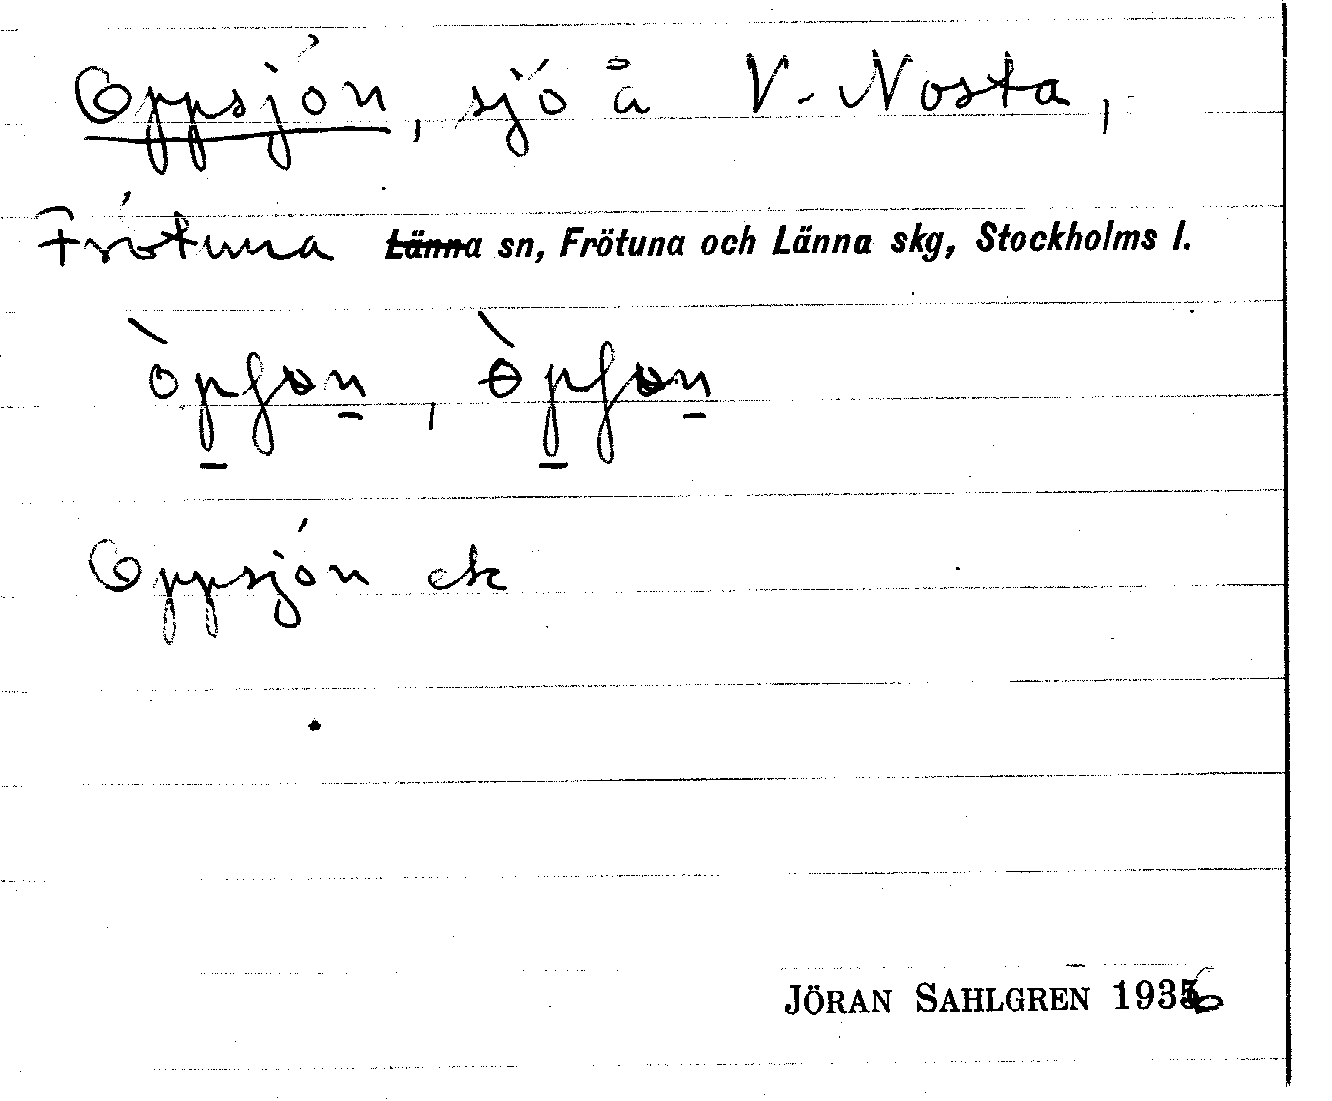 Oppsjön, sjö å V. Nosta,
Frötuna Länna sn, Frötuna och Länna skg, Stockholms l.
Oppsjön ek
JÖRAN SAHLGREN 1936